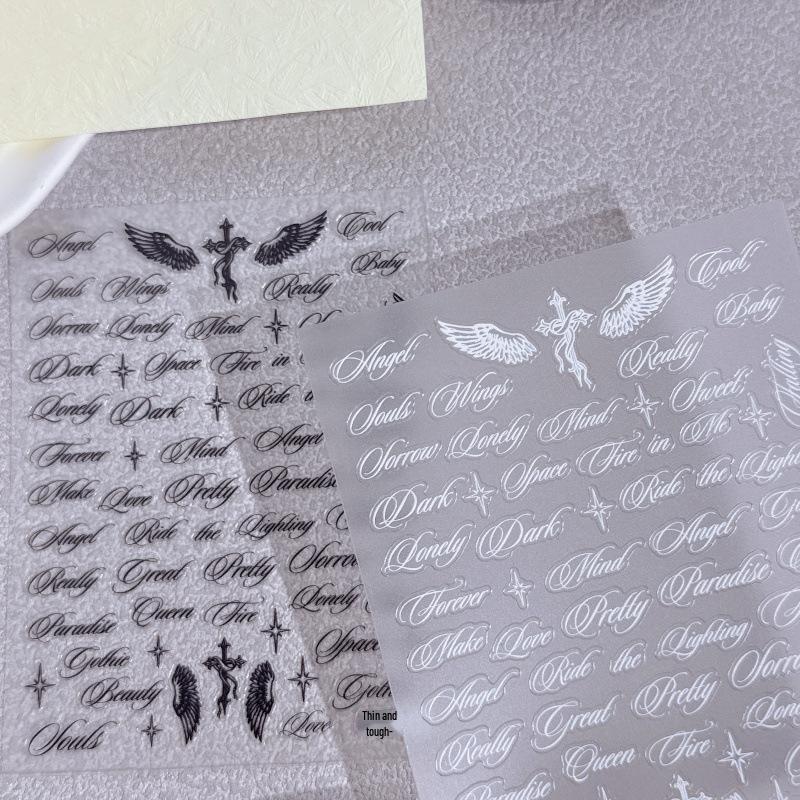 Angel Cool
Baby
Souls Wings Really
Sorrow Lonely Mind
Dark Space Fire in
Lonely Dark Ride
Forever Mind Angel
Make Love Pretty Paradise
Angel Ride the Lighting
Really Great Pretty Sorrow
Paradise Queen Fire Lonely
Gothic Space
Beauty
Souls Love
Thin and
tough-
Angel Cool
Baby
Souls Wings Really
Sorrow Lonely Mind Sweet
Dark Space Fire in Me
Lonely Dark Ride the Light
Forever Mind Angel
Make Love Pretty Paradise
Angel Ride the Lighting
Really Great Pretty Sorrow
Paradise Queen Fire